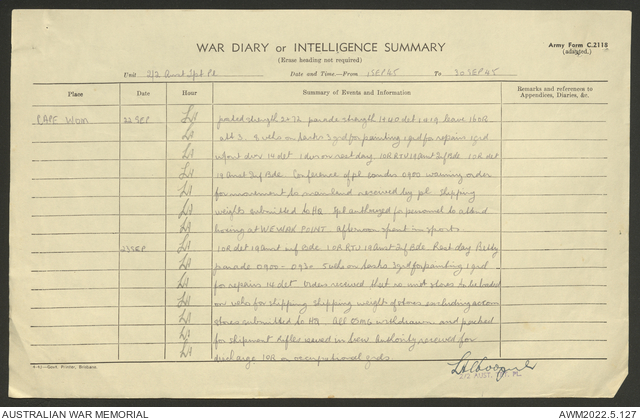 WAR DIARY or INTELLIGENCE SUMMARY
(Erase heading not required)
Army Form C.2118
(adapted.)
Unit 2/2 Aust Pl
Date and Time—From 1SEP45 To 30SEP45
Place Date Hour Summary of Events and Information Remarks and references to Appendices, Diaries, &c.
CAPE WOM 22 SEP LA posted strength 2+32 parade strength 1+40 det leave 160R
LA att 3. vehs on tasks 3 grd for painting 1 grd for repairs 1 grd
LA det 1 on rest day. 10R RTU 19 Aust Inf Bde 10R det
LA 19 Aust Inf Bde. Conference of pl comdrs 0900 warning order
LA for movement to mainland received by pl shipping
LA weights submitted to HQ authorized for personnel to attend
LA boxing at WEWAK POINT. afternoon spent in sports
23SEP LA 10R det 19 Aust Inf Bde 10R RTU 19 Aust Inf Bde Rest day
LA parade 0900 - 0930. vehs on tasks 3 grd for painting 1 grd
LA for repairs 14 det. Orders received that no unit stores to be loaded
LA on vehs for shipping shipping weight of stores excluding accom
LA stores submitted to HQ. All withdrawn and packed
LA for shipment rifles issued in lieu authority received for
LA discharge 10R on occupational grds.
2/2 AUST. PL.
4-45—Govt. Printer, Brisbane
AUSTRALIAN WAR MEMORIAL
AWM2022.5.127